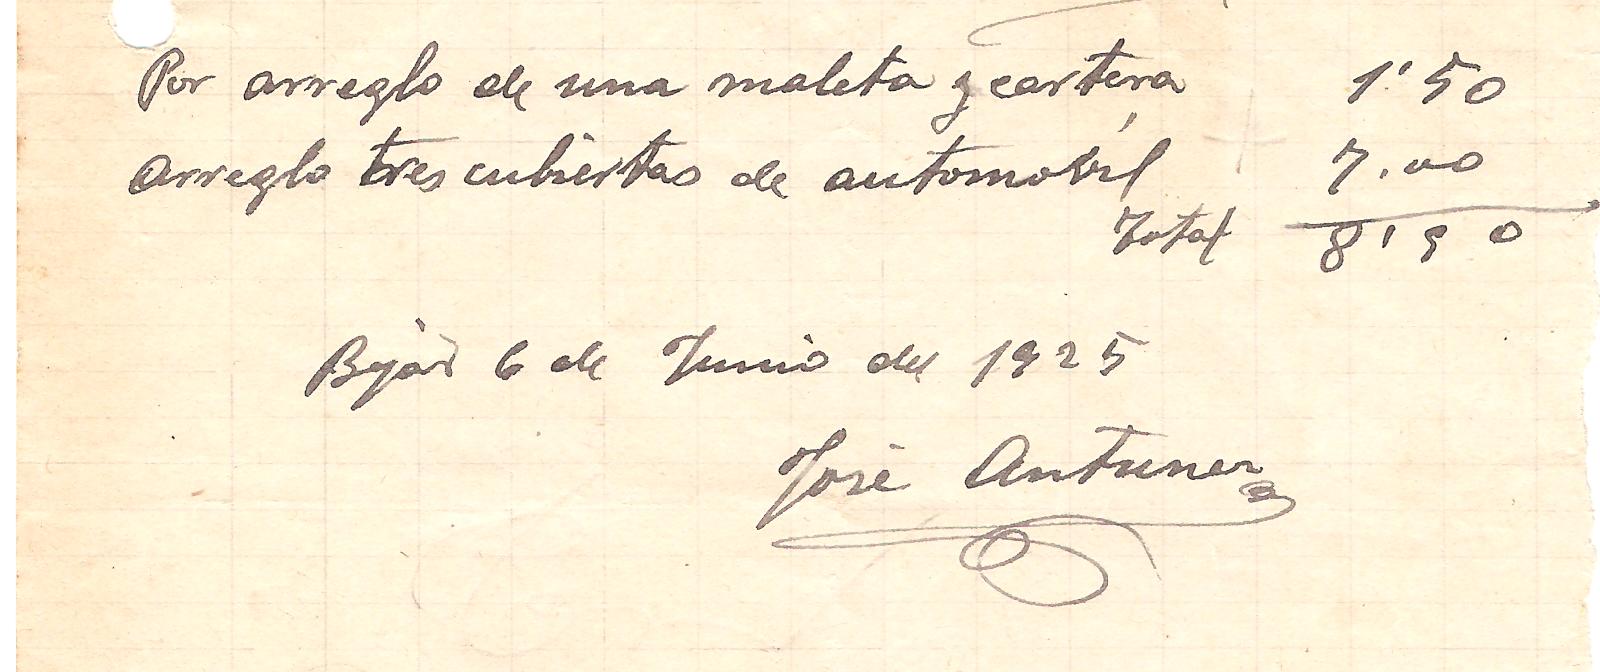 Por arreglo de una maleta y cartera 1'50
Arreglo tres cubiertas de automóvil 7.00
Total 8'50
Bejar 6 de Junio del 1925
José Antunez